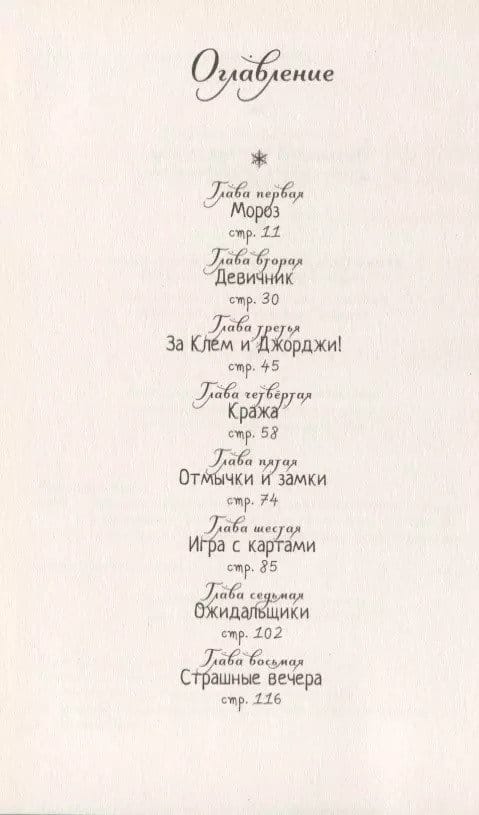 Оглавление
Глава первая
Мороз
стр. 11
Глава вторая
Девичник
стр. 30
Глава третья
За Клем и Джорджи!
стр. 45
Глава четвёртая
Кража
стр. 58
Глава пятая
Отмычки и замки
стр. 74
Глава шестая
Игра с картами
стр. 85
Глава седьмая
Ожидальщики
стр. 102
Глава восьмая
Страшные вечера
стр. 116